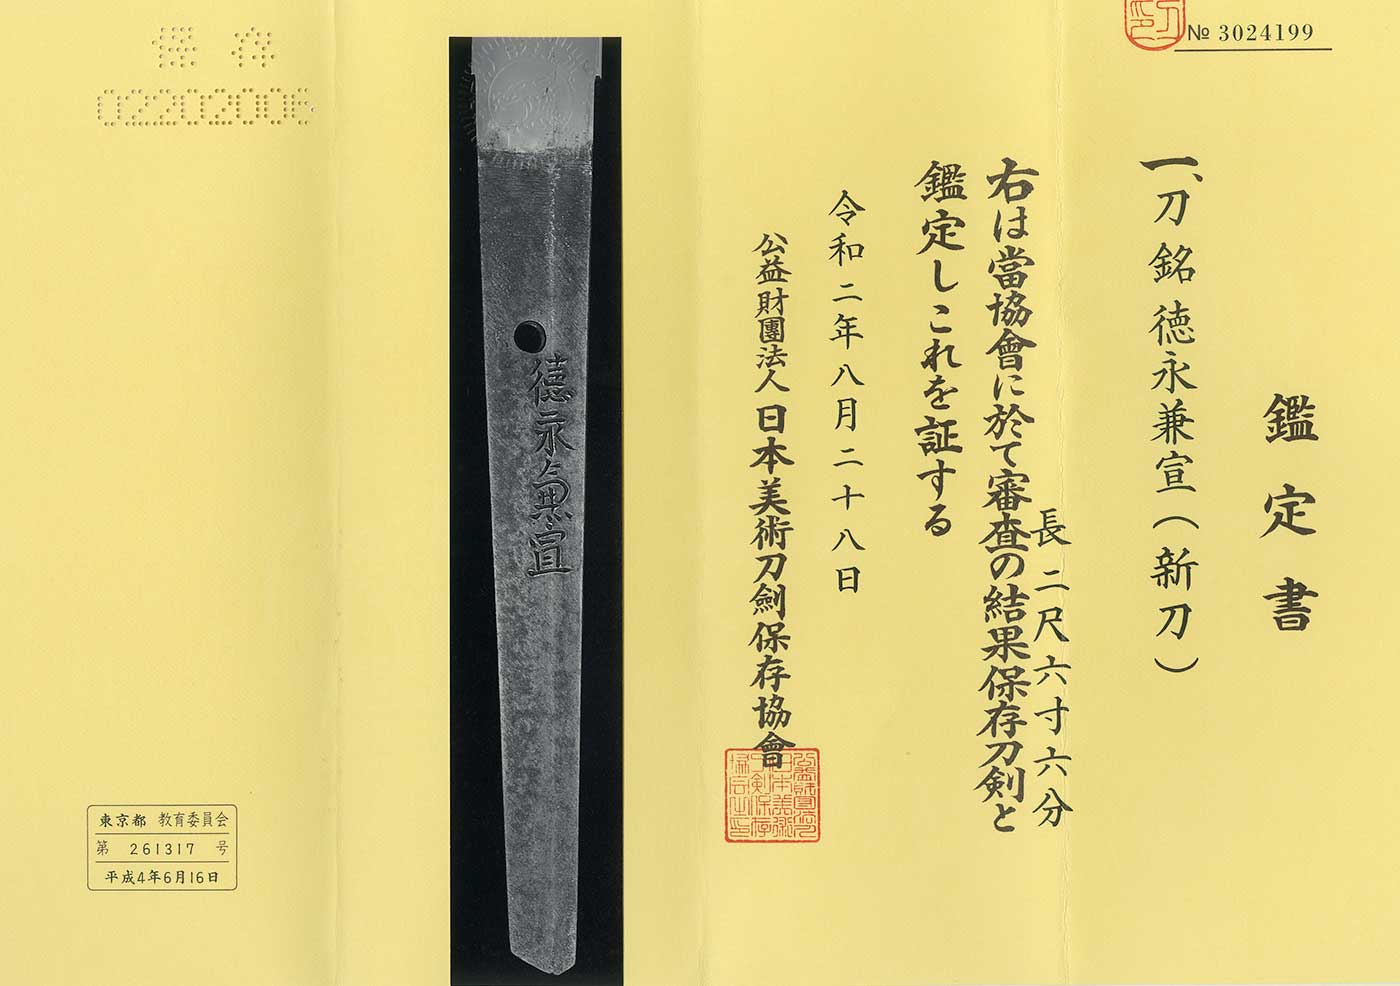 № 3024199
鑑定書
一、刀 銘 徳永兼宣（新刀）
長二尺六寸六分
右は當協會に於て審査の結果保存刀剣と
鑑定しこれを証する
令和二年八月二十八日
公益財團法人 日本美術刀劍保存協會
徳永兼宣
保存
02202006
東京都 教育委員会
第 261317 号
平成4年6月16日